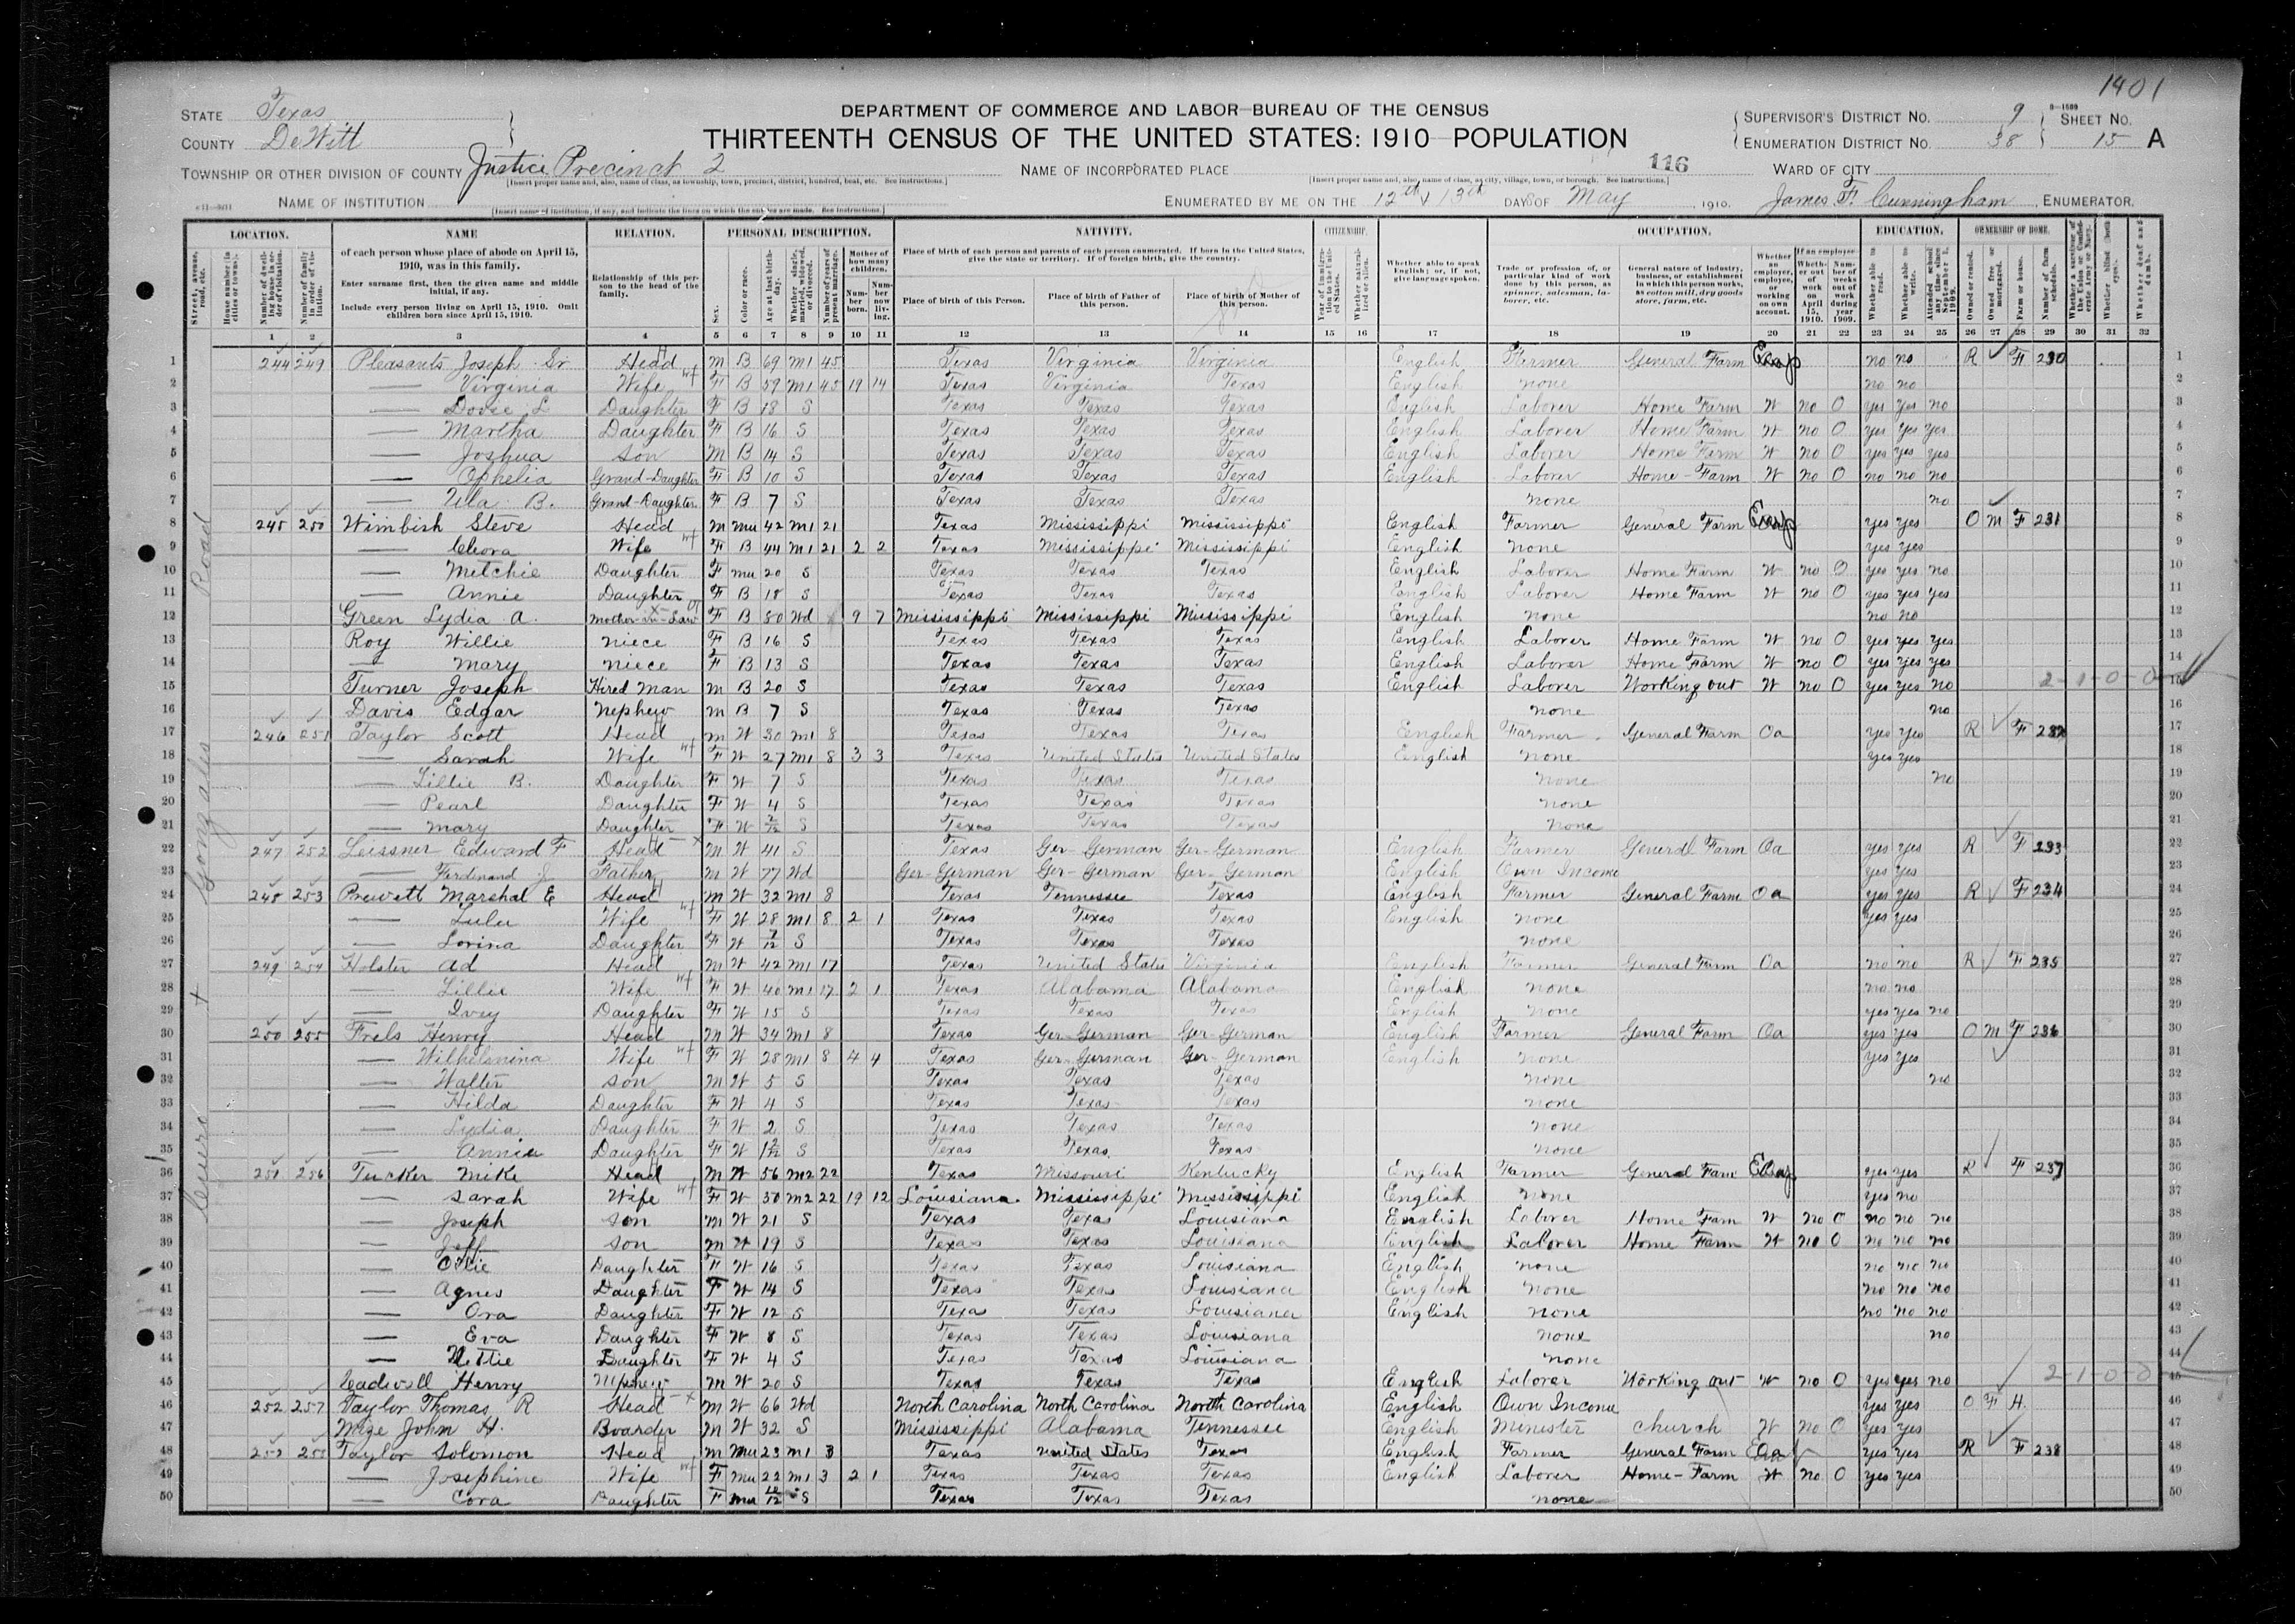 1401
STATE Texas
COUNTY DeWitt
DEPARTMENT OF COMMERCE AND LABOR—BUREAU OF THE CENSUS
THIRTEENTH CENSUS OF THE UNITED STATES: 1910—POPULATION
SUPERVISOR'S DISTRICT NO. 9
ENUMERATION DISTRICT NO. 38
8—1589
SHEET NO. 15 A
TOWNSHIP OR OTHER DIVISION OF COUNTY Justice Precinct 2
[Insert proper name and, also, name of class, as township, town, precinct, district, hundred, beat, etc. See instructions.]
NAME OF INCORPORATED PLACE
[Insert proper name and, also, name of class, as city, village, town, or borough. See instructions.]
116
WARD OF CITY
NAME OF INSTITUTION
[Insert name of institution, if any, and indicate the lines on which the entries are made. See instructions.]
ENUMERATED BY ME ON THE 12th & 13th DAYS OF May, 1910. James F. Cunningham, ENUMERATOR.
LOCATION. NAME RELATION. PERSONAL DESCRIPTION. NATIVITY. CITIZENSHIP. OCCUPATION. EDUCATION. OWNERSHIP OF HOME.
Cuero + Gonzales Road
1 244 249 Pleasants Joseph Sr Head M B 69 M1 45 Texas Virginia Virginia English Farmer General Farm Emp no no R F 230
2 — Virginia Wife F B 59 M1 45 19 14 Texas Virginia Texas English none no no
3 — Dovie L Daughter F B 18 S Texas Texas Texas English Laborer Home Farm W no 0 yes yes no
4 — Martha Daughter F B 16 S Texas Texas Texas English Laborer Home Farm W no 0 yes yes yes
5 — Joshua Son M B 14 S Texas Texas Texas English Laborer Home Farm W no 0 yes yes yes
6 — Ophelia Grand-Daughter F B 10 S Texas Texas Texas English Laborer Home-Farm W no 0 no no no
7 — Ula B. Grand-Daughter F B 7 S Texas Texas Texas none no
8 245 250 Wimbish Steve Head M Mu 42 M1 21 Texas Mississippi Mississippi English Farmer General Farm Emp yes yes O M F 231
9 — Cleora Wife F B 44 M1 21 2 2 Texas Mississippi Mississippi English none yes yes
10 — Mitchie Daughter F Mu 20 S Texas Texas Texas English Laborer Home Farm W no 0 yes yes no
11 — Annie Daughter F B 18 S Texas Texas Texas English Laborer Home Farm W no 0 yes yes yes
12 Green Lydia A. Mother-in-Law F B 80 Wd 9 7 Mississippi Mississippi Mississippi English none no no
13 Roy Willie Niece F B 16 S Texas Texas Texas English Laborer Home Farm W no 0 yes yes yes
14 — Mary Niece F B 13 S Texas Texas Texas English Laborer Home Farm W no 0 yes yes yes
15 Turner Joseph Hired Man M B 20 S Texas Texas Texas English Laborer Working out W no 0 yes yes no 2-1-0-0
16 Davis Edgar Nephew M B 7 S Texas Texas Texas none no
17 246 251 Taylor Scott Head M W 30 M1 8 Texas Texas Texas English Farmer General Farm Oa yes yes R F 232
18 — Sarah Wife F W 27 M1 8 3 3 Texas United States United States English none yes yes
19 — Lillie B. Daughter F W 7 S Texas Texas Texas none no
20 — Pearl Daughter F W 4 S Texas Texas Texas none
21 — Mary Daughter F W 2/12 S Texas Texas Texas none
22 247 252 Leissner Edward F Head M W 41 S Texas Ger-German Ger-German English Farmer General Farm Oa yes yes R F 233
23 — Ferdinand J Father M W 77 Wd Ger-German Ger-German Ger-German English Own Income yes yes
24 248 253 Prewett Marshal E Head M W 32 M1 8 Texas Tennessee Texas English Farmer General Farm Oa yes yes R F 234
25 — Lulu Wife F W 28 M1 8 2 1 Texas Texas Texas English none yes yes
26 — Lorina Daughter F W 7/12 S Texas Texas Texas none
27 249 254 Holster Ad Head M W 42 M1 17 Texas United States Virginia English Farmer General Farm Oa no no R F 235
28 — Lillie Wife F W 40 M1 17 2 1 Texas Alabama Alabama English none no no
29 — Ivey Daughter F W 15 S Texas Texas Texas English none yes yes no
30 250 255 Frels Henry Head M W 34 M1 8 Texas Ger-German Ger-German English Farmer General Farm Oa yes yes O M F 236
31 — Wilhelmina Wife F W 28 M1 8 4 4 Texas Ger-German Ger-German English none yes yes
32 — Walter Son M W 5 S Texas Texas Texas none no
33 — Hilda Daughter F W 4 S Texas Texas Texas none
34 — Lydia Daughter F W 2 S Texas Texas Texas none
35 — Annie Daughter F W S Texas Texas Texas none
36 251 256 Tucker Mike Head M W 56 M2 22 Texas Missouri Kentucky English Farmer General Farm yes yes R F 237
37 — Sarah Wife F W 50 M2 22 19 12 Louisiana Mississippi Mississippi English none yes no
38 — Joseph Son M W 21 S Texas Texas Louisiana English Laborer Home Farm W no 0 no no no
39 — Jeff Son M W 19 S Texas Texas Louisiana English Laborer Home Farm W no 0 no no no
40 — Ollie Daughter F W 16 S Texas Texas Louisiana English none no no no
41 — Agnes Daughter F W 14 S Texas Texas Louisiana English none no no no
42 — Ora Daughter F W 12 S Texas Texas Louisiana English none no no no
43 — Eva Daughter F W 8 S Texas Texas Louisiana none no
44 — Nettie Daughter F W 4 S Texas Texas Louisiana none
45 Cadwell Henry Nephew M W 20 S Texas Texas Texas English Laborer Working out W no 0 yes yes no 2-1-0-0
46 252 257 Taylor Thomas R Head M W 66 Wd North Carolina North Carolina North Carolina English Own Income yes yes O F H
47 Mize John H. Boarder M W 32 S Mississippi Alabama Tennessee English Minister Church W no 0 yes yes
48 Taylor Solomon Head M Mu 23 M1 3 Texas United States Texas English Farmer General Farm Oa yes yes R F 238
49 — Josephine Wife F Mu 22 M1 3 2 1 Texas Texas Texas English Laborer Home-Farm W no 0 yes yes
50 — Cora Daughter F Mu S Texas Texas Texas none